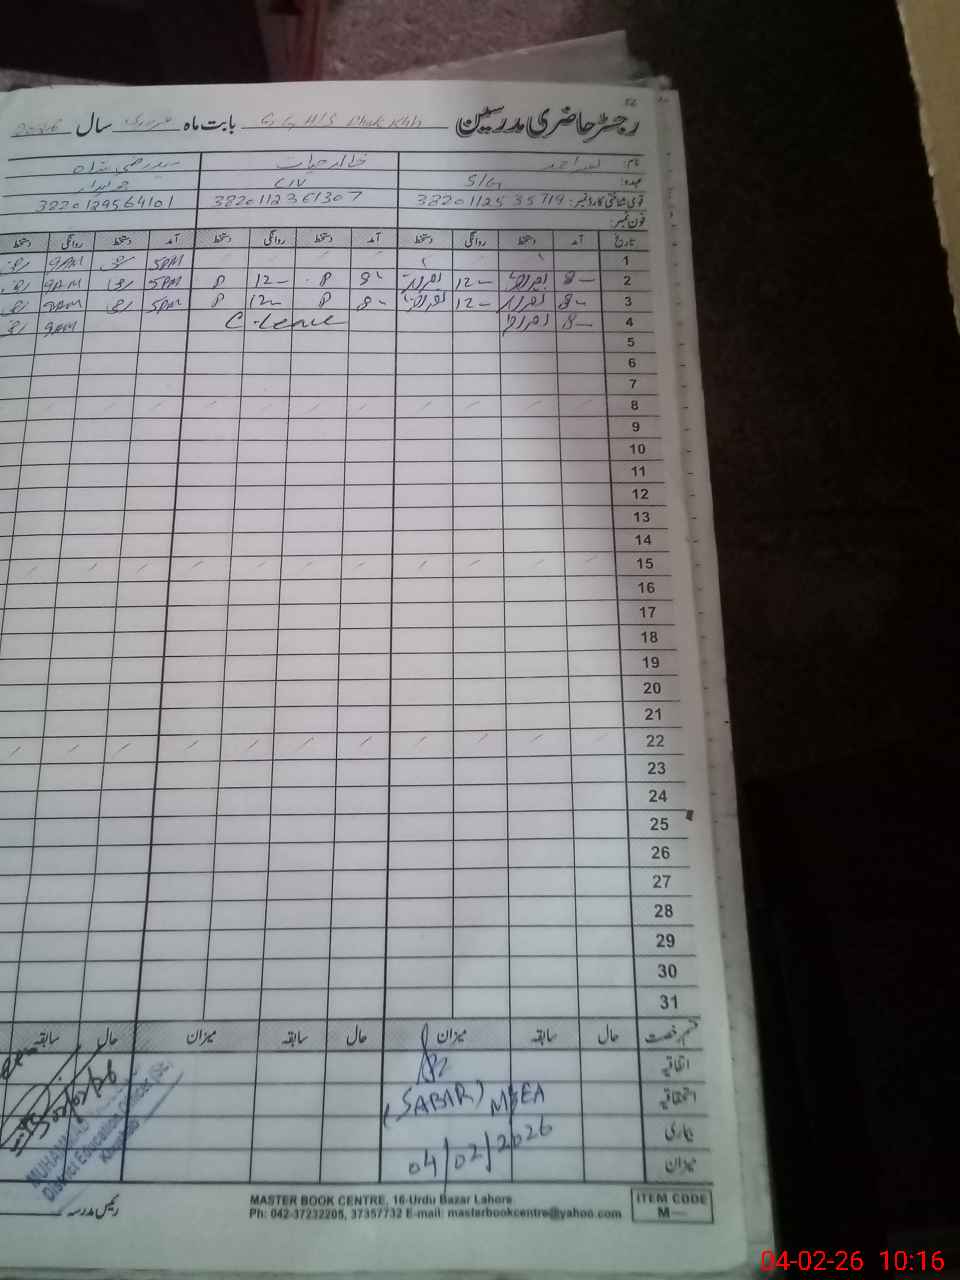 رجسٹر حاضری مدرسین G.G.H/S Chak بابت ماہ فروری سال 2026
نام: خالد حیات
عہدہ: S/G C/V
قومی شناختی کارڈ نمبر: 3820112535719 3820112361307 3820129564101
فون نمبر:
تاریخ آمد دستخط روانگی دستخط آمد دستخط روانگی دستخط آمد دستخط روانگی دستخط
1 5PM 9AM
2 8 12 8 8 12 8 5PM 9AM
3 8 12 8 8 12 8 5PM 9AM
4 8 C.leave 9AM
5
6
7
8
9
10
11
12
13
14
15
16
17
18
19
20
21
22
23
24
25
26
27
28
29
30
31
قسم رخصت حال سابقہ میزان حال سابقہ میزان حال سابقہ
اتفاقیہ
استحقاقیہ (SABIR) MEA
بیماری 04/02/2026
میزان
District Education Officer (SE)
رئیس مدرسہ
MASTER BOOK CENTRE, 16-Urdu Bazar Lahore
Ph: 042-37232205, 37357732 E-mail: masterbookcentre@yahoo.com
ITEM CODE
M—
04-02-26 10:16